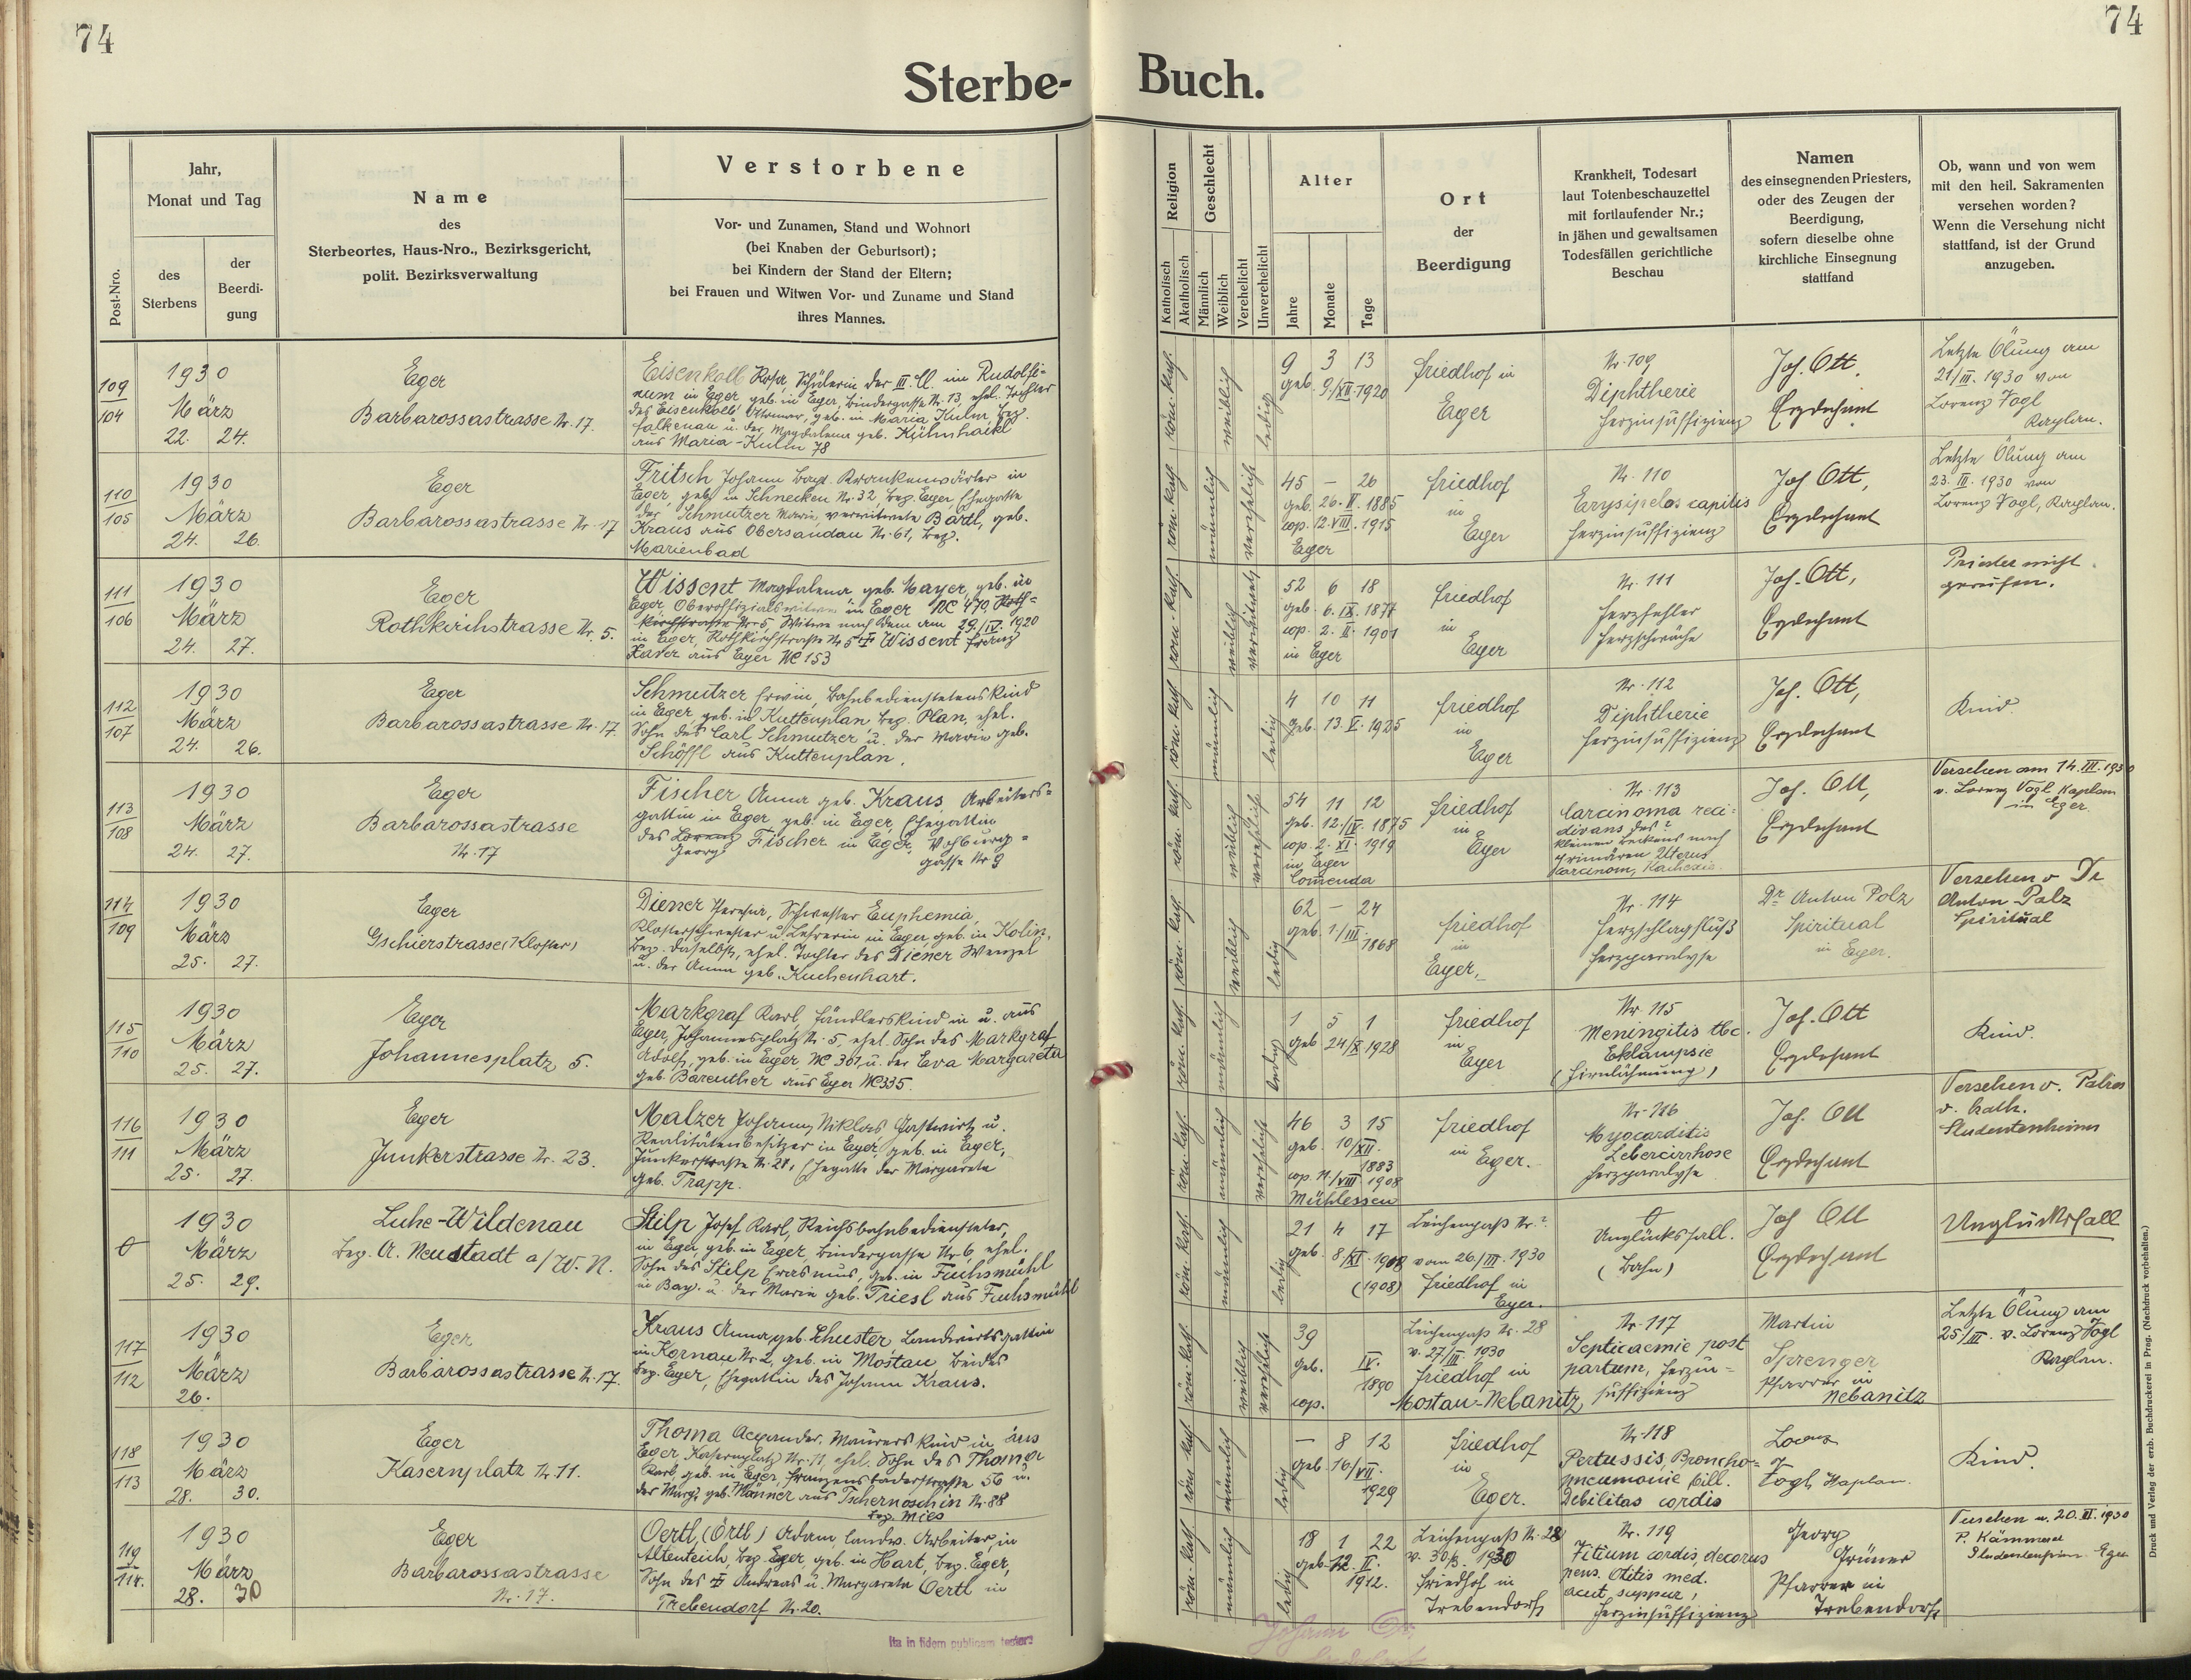 74
74
Sterbe-Buch.
Post-Nro.
Jahr,
Monat und Tag
des
Sterbens
der
Beerdi-
gung
Name
des
Sterbeortes, Haus-Nro., Bezirksgericht,
polit. Bezirksverwaltung
Verstorbene
Vor- und Zunamen, Stand und Wohnort
(bei Knaben der Geburtsort);
bei Kindern der Stand der Eltern;
bei Frauen und Witwen Vor- und Zuname und Stand
ihres Mannes.
Religion
Katholisch
Akatholisch
Geschlecht
Männlich
Weiblich
Verehelicht
Unverehelicht
Alter
Jahre
Monate
Tage
Ort
der
Beerdigung
Krankheit, Todesart
laut Totenbeschauzettel
mit fortlaufender Nr.;
in jähen und gewaltsamen
Todesfällen gerichtliche
Beschau
Namen
des einsegnenden Priesters,
oder des Zeugen der
Beerdigung,
sofern dieselbe ohne
kirchliche Einsegnung
stattfand
Ob, wann und von wem
mit den heil. Sakramenten
versehen worden?
Wenn die Versehung nicht
stattfand, ist der Grund
anzugeben.
109
104
1930
März
22. 24.
Eger
Barbarossastrasse Nr. 17.
Eisenkolb Rosa, Schülerin der III. Cl. im Rudolfi-
num in Eger, geb. in Eger, Bindergasse Nr. 13, ehel. Tochter
des Eisenkolb Ottomar, geb. in Maria Kulm, Bez.
Falkenau u. der Magdalena geb. Kühnhackl
aus Maria-Kulm 78
röm. kath.
weiblich
ledig
9 3 13
geb. 9/XII. 1920
Friedhof in
Eger
Nr. 109
Diphtherie
Herzinsuffizienz
Joh. Ott,
Erzdechant
Letzte Ölung am
21/III. 1930 von
Lorenz Vogl
Kaplan.
110
105
1930
März
24. 26.
Eger
Barbarossastrasse Nr. 17
Fritsch Johann Bapt. Krankenwärter in
Eger, geb. in Schnecken Nr. 32 Bez. Eger Ehegatte
der Schmutzer Marie, verwitwete Bartl, geb.
Kraus aus Obersandau Nr. 61, Bez.
Marienbad
röm. kath.
männlich
verehelicht
45 – 26
geb. 26. II. 1885
cop. 12. VIII. 1915
Eger
Friedhof
in
Eger
Nr. 110
Erysipelos capitis
Herzinsuffizienz
Joh. Ott,
Erzdechant
Letzte Ölung am
23. III. 1930 von
Lorenz Vogl, Kaplan.
111
106
1930
März
24. 27.
Eger
Rothkirchstrasse Nr. 5.
Wissent Magdalena geb. Mayer, geb. in
Eger, Oberoffizialswitwe in Eger NC 470, Roth-
kirchstrasse Nr. 5, Witwe nach dem am 29./IV. 1920
in Eger, Rothkirchstraße Nr 5 † Wissent Franz
Xaver aus Eger NC 153
röm. kath.
weiblich
verwitwet
52 6 18
geb. 6. IX. 1877
cop. 2. II. 1901
in Eger
Friedhof
in
Eger
Nr. 111
Herzfehler
Herzschwäche
Joh. Ott,
Erzdechant
Priester nicht
gerufen.
112
107
1930
März
24. 26.
Eger
Barbarossastrasse Nr. 17.
Schmutzer Erwin, Bahnbedienstetenskind
in Eger, geb. in Kuttenplan Bez. Plan, ehel.
Sohn des Carl Schmutzer u. der Marie geb.
Schöffl aus Kuttenplan.
röm. kath
männlich
ledig
4 10 11
geb. 13. V. 1925
Friedhof
in
Eger
Nr. 112
Diphtherie
Herzinsuffizienz
Joh. Ott,
Erzdechant
Kind.
113
108
1930
März
24. 27.
Eger
Barbarossastrasse
Nr. 17
Fischer Anna geb. Kraus, Arbeiters-
gattin in Eger geb. in Eger, Ehegattin
des Lorenz Fischer in Eger, Vohburg-
Georg gasse Nr 9
röm kath
weiblich
verehelicht
54 11 12
geb. 12./IV. 1875
cop. 2. XI. 1919
in Eger
Comenda
Friedhof
in
Eger
Nr. 113
Carcinoma reci-
divans des
kleinen Beckens nach
primären Uterus
carcinom, Kachexie.
Joh. Ott,
Erzdechant
Versehen am 14. III. 1930
v. Lorenz Vogl Kaplan
in Eger.
114
109
1930
März
25. 27.
Eger
Gschierstrasse (Kloster)
Diener Theresia, Schwester Euphemia,
Klosterschwester u. Lehrerin in Eger, geb. in Kolin,
Bez. daselbst, ehel. Tochter des Diener Wenzel
u. der Anna geb. Kuchenhart.
röm. kath.
weiblich
ledig
62 – 24
geb. 1/III.
1868
Friedhof
in
Eger.
Nr. 114
Herzschlagfluß
Herzparalyse
Dr. Anton Polz
Spiritual
in Eger.
Versehen v Dr
Anton Palz
Spiritual
115
110
1930
März
25. 27.
Eger
Johannesplatz 5.
Markgraf Karl, Händlerskind in u. aus
Eger, Johannesplatz Nr. 5, ehel. Sohn des Markgraf
Adolf, geb. in Eger, NC 301, u. der Eva Margareta
geb. Bareuther aus Eger NC 335.
röm. kath.
männlich
ledig
1 5 1
geb 24/X 1928
Friedhof
in
Eger
Nr. 115
Meningitis tbc.
Eklampsie
(Hirnlähmung)
Joh. Ott
Erzdechant
Kind.
116
111
1930
März
25. 27.
Eger
Junkerstrasse Nr. 23.
Malzer Johann Niklas Gastwirt u.
Realitätenbesitzer in Eger, geb. in Eger,
Junkerstraße Nr. 21, Ehegatte der Margareta
geb. Trapp.
röm. kath.
männlich
verehelicht
46 3 15
geb. 10/XII.
1883
cop. 11/VIII. 1908
Mühlessen
Friedhof
in Eger.
Nr. 116
Myocarditis
Lebercirrhose
Herzparalyse
Joh. Ott
Erzdechant
Versehen v. Patres
d. kath.
Studentenheims
1930
März
25. 29.
Luhe-Wildenau
Bez. A. Neustadt a/W. N.
Stilp Josef Karl, Reichsbahnbediensteter,
in Eger, geb. in Eger, Bindergasse Nr. 6, ehel.
Sohn des Stilp Erasmus, geb. in Fuchsmühl
in Bay. u. der Marie geb. Triesl aus Fuchsmühl
röm. kath.
männlich
ledig
21 4 17
geb. 8/XI. 1908
(1908)
Leichenpaß Nr. ?
vom 26/III. 1930
Friedhof in
Eger.
Unglücksfall.
(Bahn)
Joh Ott
Erzdechant
Unglücksfall
117
112
1930
März
26.
Eger
Barbarossastrasse Nr. 17.
Kraus Anna, geb. Schuster, Landwirtsgattin
in Kornau Nr. 2, geb. in Mostau beides
Bez. Eger, Ehegattin des Johann Kraus.
röm. kath.
weiblich
verehelicht
39
geb. IV.
1890
cop.
Leichenpaß Nr. 28
v. 27/III. 1930
Friedhof in
Mostau-Nebanitz
Nr. 117
Septicaemie post
partum, Herzin-
suffizienz
Martin
Sprenger
Pfarrer in
Nebanitz
Letzte Ölung am
25/III. v. Lorenz Vogl
Kaplan.
118
113
1930
März
28. 30.
Eger
Kasernplatz Nr. 11.
Thoma Alexander, Maurers Kind in aus
Eger, Kasernplatz Nr. 11, ehel. Sohn des Thoma
Karl, geb. in Eger, Franzensbaderstraße 56 u.
der Marg. geb. Männer aus Tschernoschin Nr. 88
Bez. Mies
röm. kath
männlich
ledig
– 8 12
geb. 16/VII.
1929
Friedhof
in
Eger.
Nr. 118
Pertussis, Broncho-
pneumonie bill.
Debilitas cordis
Lorenz
Vogl Kaplan.
Kind.
119
114.
1930
März
28. 30
Eger
Barbarossastrasse
Nr. 17.
Oertl, (Örtl) Adam, landw. Arbeiter, in
Altenteich, Bez. Eger, geb. in Hart, Bez. Eger,
Sohn des † Andreas u. Margareta Oertl in
Trebendorf Nr. 20.
röm. kath
männlich
ledig
18 1 22
geb. 12. II.
1912.
Leichenpaß Nr. 28
v. 30/3. 1930
Friedhof in
Trebendorf
Nr. 119
Vitium cordis decom
pens. Otitis med.
acut. suppur.,
Herzinsuffizienz
Georg
Grüner
Pfarrer in
Trebendorf
Versehen a. 20. III. 1930
P. Kämmerer
Studentenheim Eger
Ita in fidem publicam testor:
Druck und Verlag der erzb. Buchdruckerei in Prag. (Nachdruck vorbehalten.)